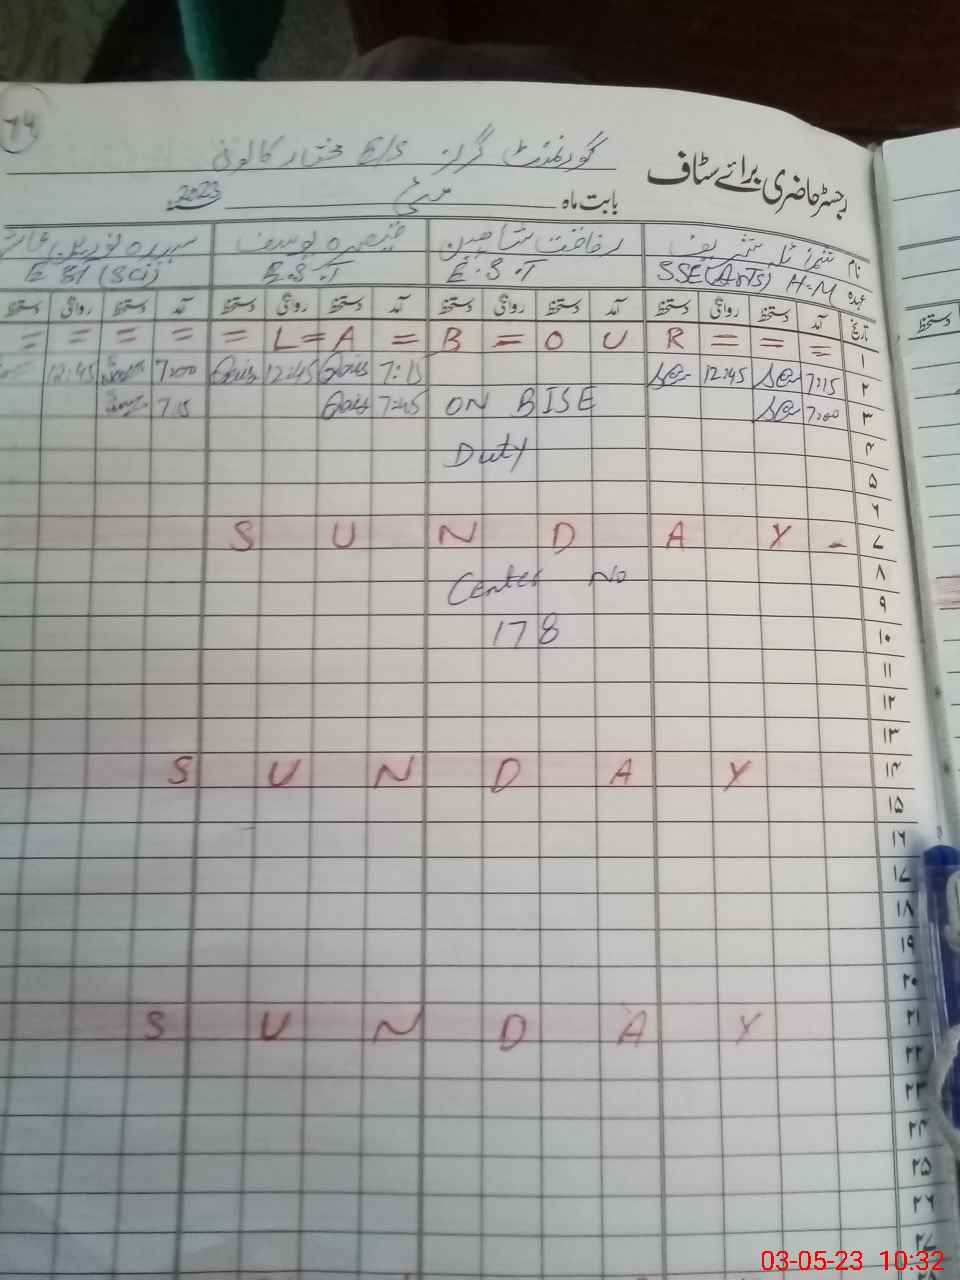 74
رجسٹر حاضری برائے سٹاف
گورنمنٹ گرلز E/S مختار کالونی
بابت ماہ مئی 2023
نام شریف رفاقت شاہین یوسف سدرہ نورین
عہدہ SSE(Arts) H.M E.S.T E.S.T ESE (Sci)
تاریخ آمد دستخط روانگی دستخط آمد دستخط روانگی دستخط آمد دستخط روانگی دستخط آمد دستخط روانگی دستخط
۱ = = = = = L = A = B = O U R = = =
۲ 7:15 12:45 7:15 12:45 7:00 12:45
۳ 7:00 ON BISE 7:45 7:15
۴ Duty
۵
۶
۷ S U N D A Y -
۸ Center No
۹
۱۰ 178
۱۱
۱۲
۱۳
۱۴ S U N D A Y
۱۵
۱۶
۱۷
۱۸
۱۹
۲۰
۲۱ S U N D A Y
۲۲
۲۳
۲۴
۲۵
۲۶
۲۷
دستخط
03-05-23 10:32